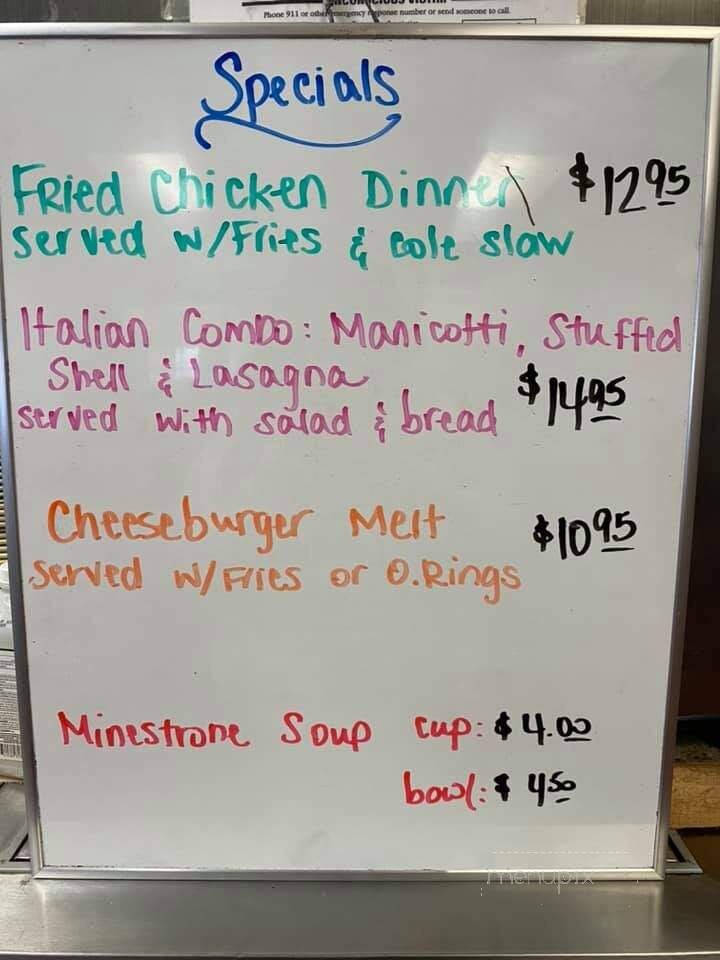 Phone 911 or other emergency response number or send someone to call.
Specials
Fried Chicken Dinner $12.95
served w/Fries & cole slaw
Italian Combo: Manicotti, Stuffed
Shell & Lasagna
served with salad & bread $14.95
Cheeseburger Melt $10.95
served w/Fries or O.Rings
Minestrone Soup cup: $4.00
bowl: $4.50
menupix